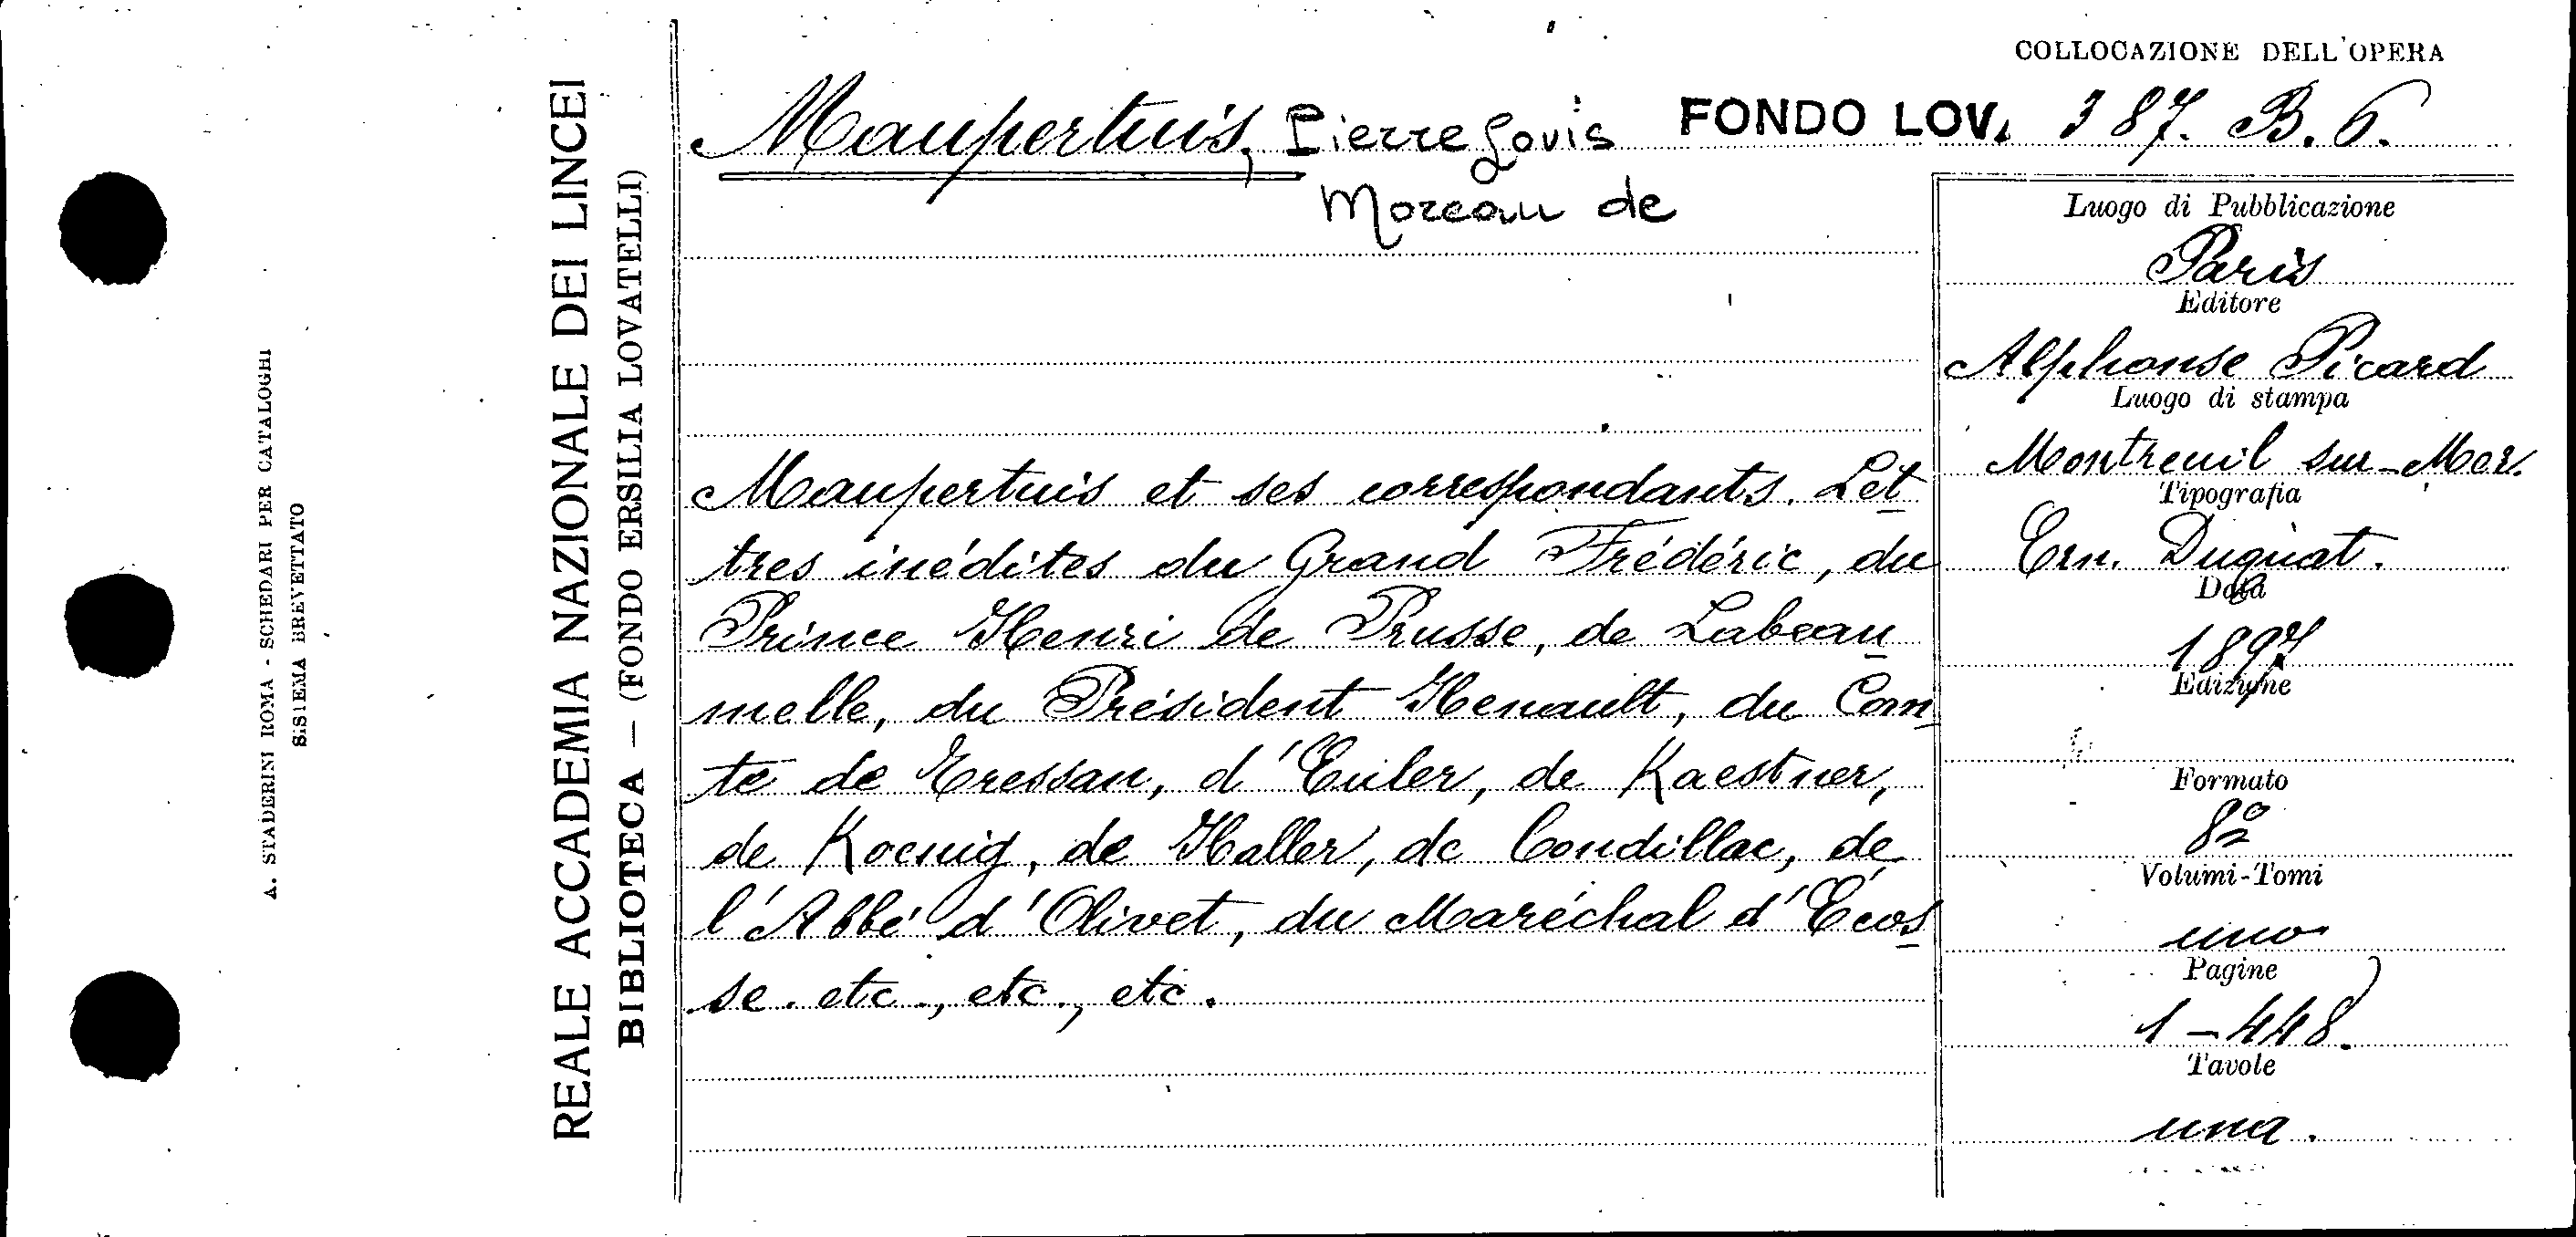 COLLOCAZIONE DELL'OPERA
Maupertuis, Pierre Louis FONDO LOV. 387. B. 6.
Moreau de
Luogo di Pubblicazione
Paris
Editore
Alphonse Picard
Luogo di stampa
Montreuil sur-Mer.
Tipografia
Ern. Duquat.
Data
1897
Edizione
Formato
8º
Volumi-Tomi
uno
Pagine
1-448.
Tavole
una.
Maupertuis et ses correspondants. Let
tres inédites du Grand Frédéric, du
Prince Henri de Prusse, de Labeau
melle, du Président Henault, du Com
te de Tressan, d'Euler, de Kaestner,
de Koenig, de Haller, de Condillac, de
l'Abbé d'Olivet, du Maréchal d'Écos
se. etc., etc., etc.
REALE ACCADEMIA NAZIONALE DEI LINCEI
BIBLIOTECA — (FONDO ERSILIA LOVATELLI)
A. STADERINI ROMA - SCHEDARI PER CATALOGHI
SISTEMA BREVETTATO